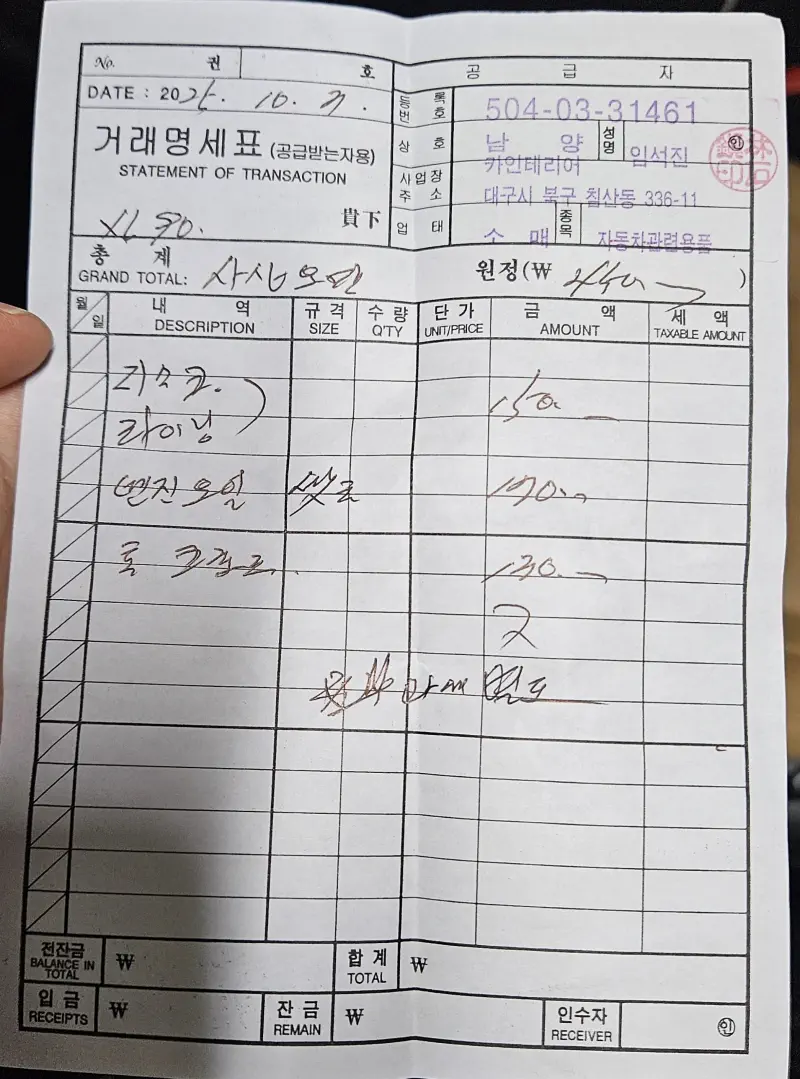 No. 권 호
DATE : 20 10.
거래명세표 (공급받는자용)
STATEMENT OF TRANSACTION
貴下
공급자
등록번호 504-03-31461
상호 남양카인테리어 성명 임석진 ㊞
사업장주소 대구시 북구 침산동 336-11
업태 소매 종목 자동차관련용품
총계
GRAND TOTAL: 사십 원정(₩ 440 )
월일 내역 규격 수량 단가 금액 세액
DESCRIPTION SIZE Q'TY UNIT/PRICE AMOUNT TAXABLE AMOUNT
디스크.
라이닝 150
엔진오일 170
130
별도
전잔금 ₩ 합계 ₩
BALANCE IN TOTAL TOTAL
입금 ₩ 잔금 ₩ 인수자 ㊞
RECEIPTS REMAIN RECEIVER